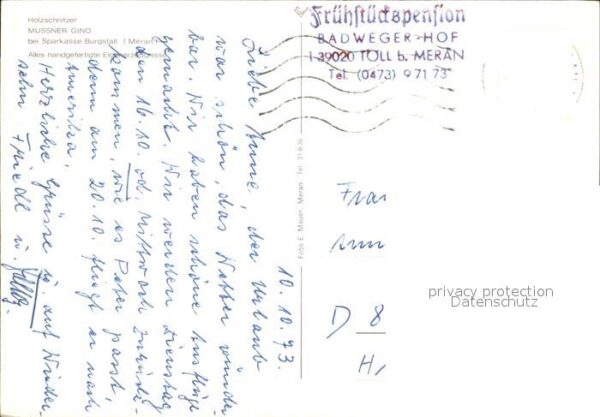 Holzschnitzer
MUSSNER GINO
bei Sparkasse Burgstall ( Meran )
Alles handgefertigte
Frühstückspension
BADWEGER-HOF
I-39020 TÖLL b. MERAN
Tel. (0473) 9 71 73
10. 10. 73.
Liebe Anne, der Urlaub
war schön, das Wetter wunder-
bar. Wir haben schöne Ausflüge
gemacht. Wir werden Dienstag
den 16.10. od. Mittwoch zurück-
kommen, wie es Peter passt,
denn am 20.10. fliegt er nach
Amerika.
Herzliche Grüsse u. auf Wieder-
sehn Friedl u.
Foto E. Mauer, Meran Tel.
Frau
D 8
privacy protection
Datenschutz